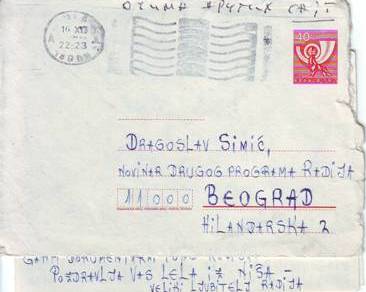 40
22-23
DRAGOSLAV SIMIĆ,
NOVINAR DRUGOG PROGRAMA RADIJA
11000 BEOGRAD
HILANDARSKA 2
POZDRAVLJA VAS LELA IZ NIŠA -
VELIKI LJUBITELJ RADIJA